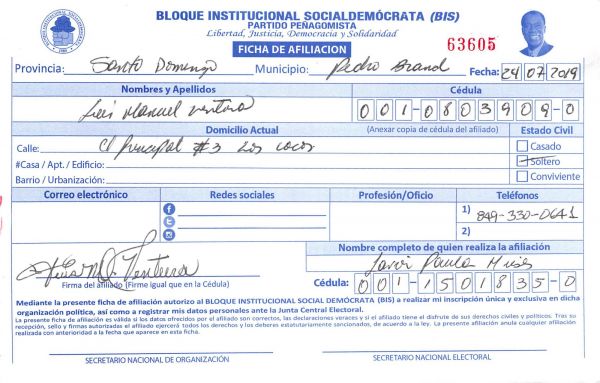 BLOQUE INSTITUCIONAL SOCIALDEMÓCRATA (BIS)
PARTIDO PEÑAGOMISTA
Libertad, Justicia, Democracia y Solidaridad
FICHA DE AFILIACION
63605
Provincia: Santo Domingo Municipio: Pedro Brand Fecha: 24 07 2019
Nombres y Apellidos Cédula
Luis Manuel Ventura 001-0803909-0
Domicilio Actual (Anexar copia de cédula del afiliado) Estado Civil
Calle: C/ Principal #3 Los Cocos Casado
#Casa / Apt. / Edificio: Soltero
Barrio / Urbanización: Conviviente
Correo electrónico Redes sociales Profesión/Oficio Teléfonos
1) 849-330-0641
2)
Nombre completo de quien realiza la afiliación
Luis M. Ventura Paula
Firma del afiliado (Firme igual que en la Cédula) Cédula: 001-1501835-0
Mediante la presente ficha de afiliación autorizo al BLOQUE INSTITUCIONAL SOCIAL DEMÓCRATA (BIS) a realizar mi inscripción única y exclusiva en dicha
organización política, así como a registrar mis datos personales ante la Junta Central Electoral.
La presente ficha de afiliación es válida si los datos ofrecidos por el afiliado son correctos, las declaraciones veraces y si el afiliado tiene el disfrute de sus derechos civiles y políticos. Tras su
recepción, sello y firmas autorizadas el afiliado ejercerá todos los derechos y los deberes estatutariamente sancionados, de acuerdo a la ley. La presente afiliación anula cualquier afiliación
realizada con anterioridad a la fecha que aparece en esta ficha.
SECRETARIO NACIONAL DE ORGANIZACIÓN SECRETARIO NACIONAL ELECTORAL